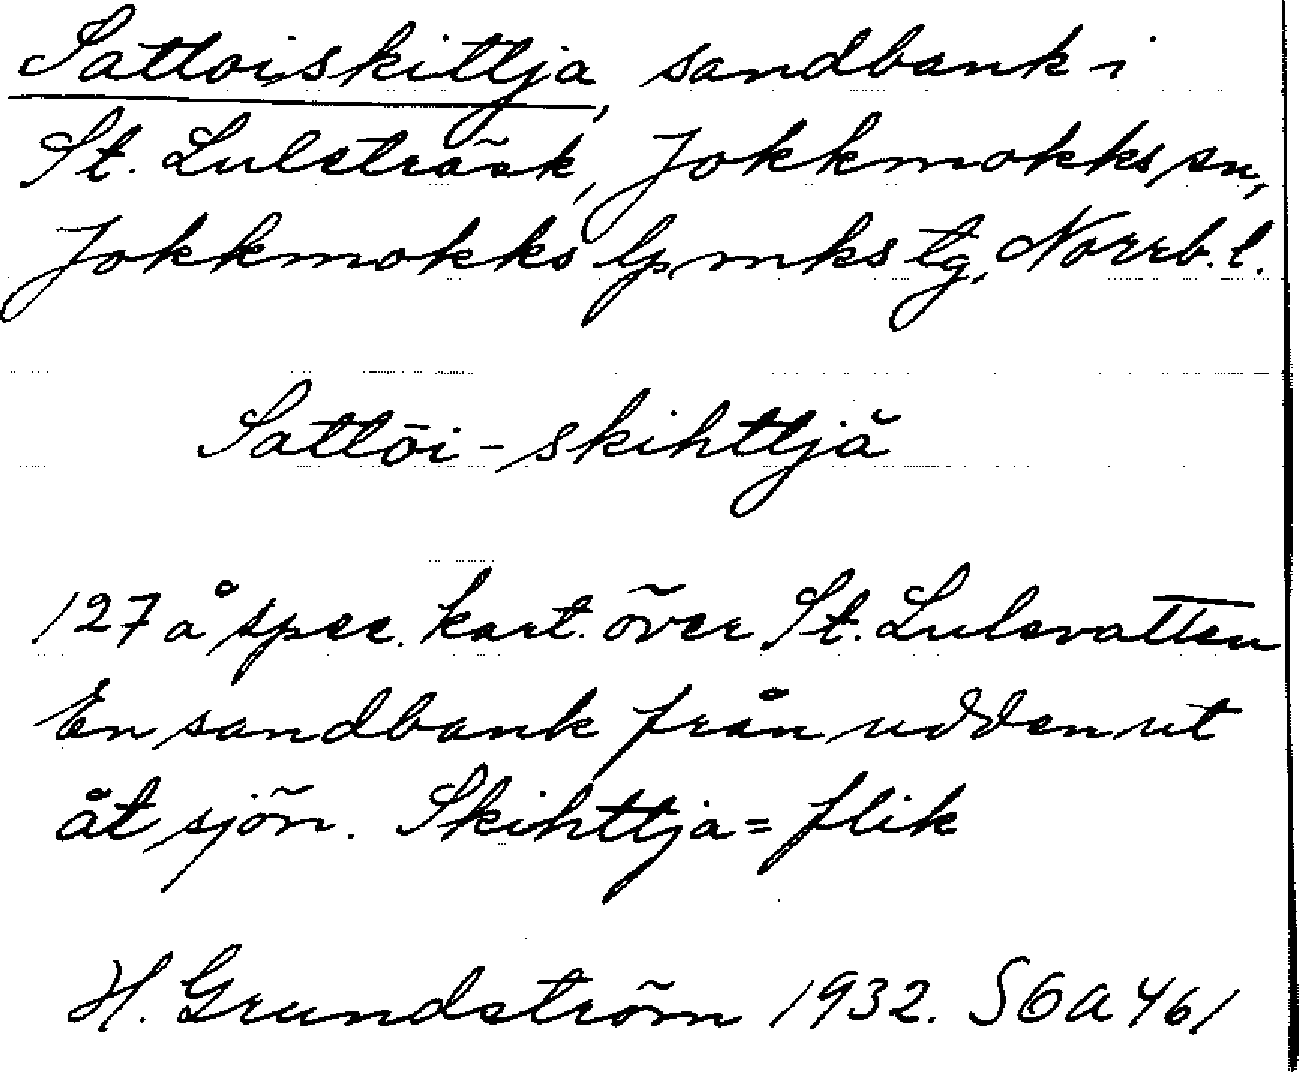 Sattoiskittja, sandbank i
St. Luleträsk, Jokkmokks sn,
Jokkmokks lpmks tg, Norrb. l.
Sattōi-skihttjă
127 å spec. kart. över St. Lulevatten
En sandbank från udden ut
åt sjön. Skihttja = flik
H. Grundström 1932. SOA 461